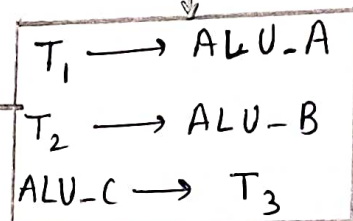 T₁ ⟶ ALU-A
T₂ ⟶ ALU-B
ALU-C ⟶ T₃